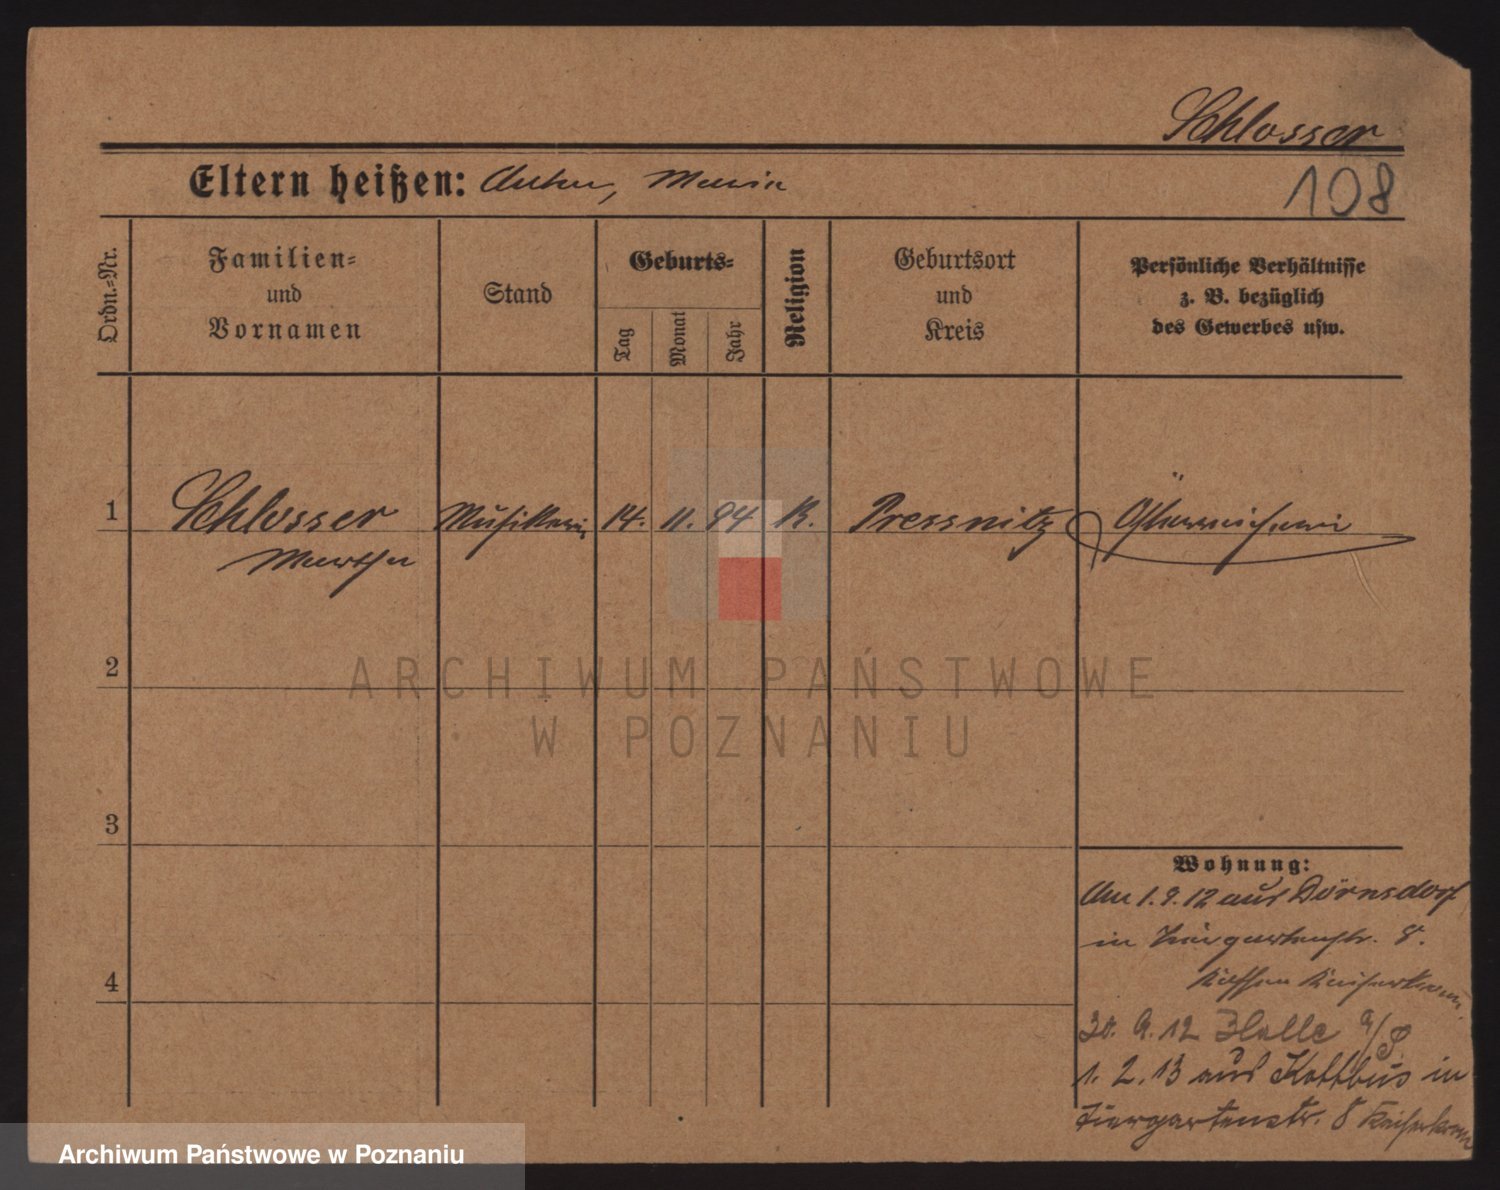 Schlosser
Eltern heißen: Anton, Maria
108
Ordn.-Nr.
Familien- und Vornamen
Stand
Geburts-
Tag
Monat
Jahr
Religion
Geburtsort und Kreis
Persönliche Verhältnisse z. B. bezüglich des Gewerbes usw.
1 Schlosser Musikerin 14. 11. 94 K. Pressnitz Österreicherin
Martha
2
3
4
ARCHIWUM PAŃSTWOWE
W POZNANIU
Wohnung:
Am 1.9.12 aus Dörnsdorf
in Tiergartenstr. 8.
Kaiserkrone
30. 9. 12 Halle a/S.
1. 2. 13 aus Kottbus in
Tiergartenstr. 8 Kaiserkrone
Archiwum Państwowe w Poznaniu